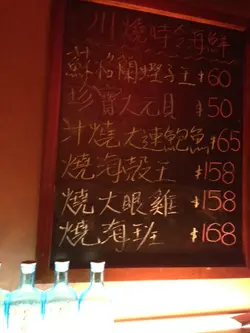 川燒時令海鮮
蘇焰蘭蟶子王 $60
珍寶大元貝 $50
汁燒大連鮑魚 $65
燒海殼王 $158
燒大眼雞 $158
燒海班 $168